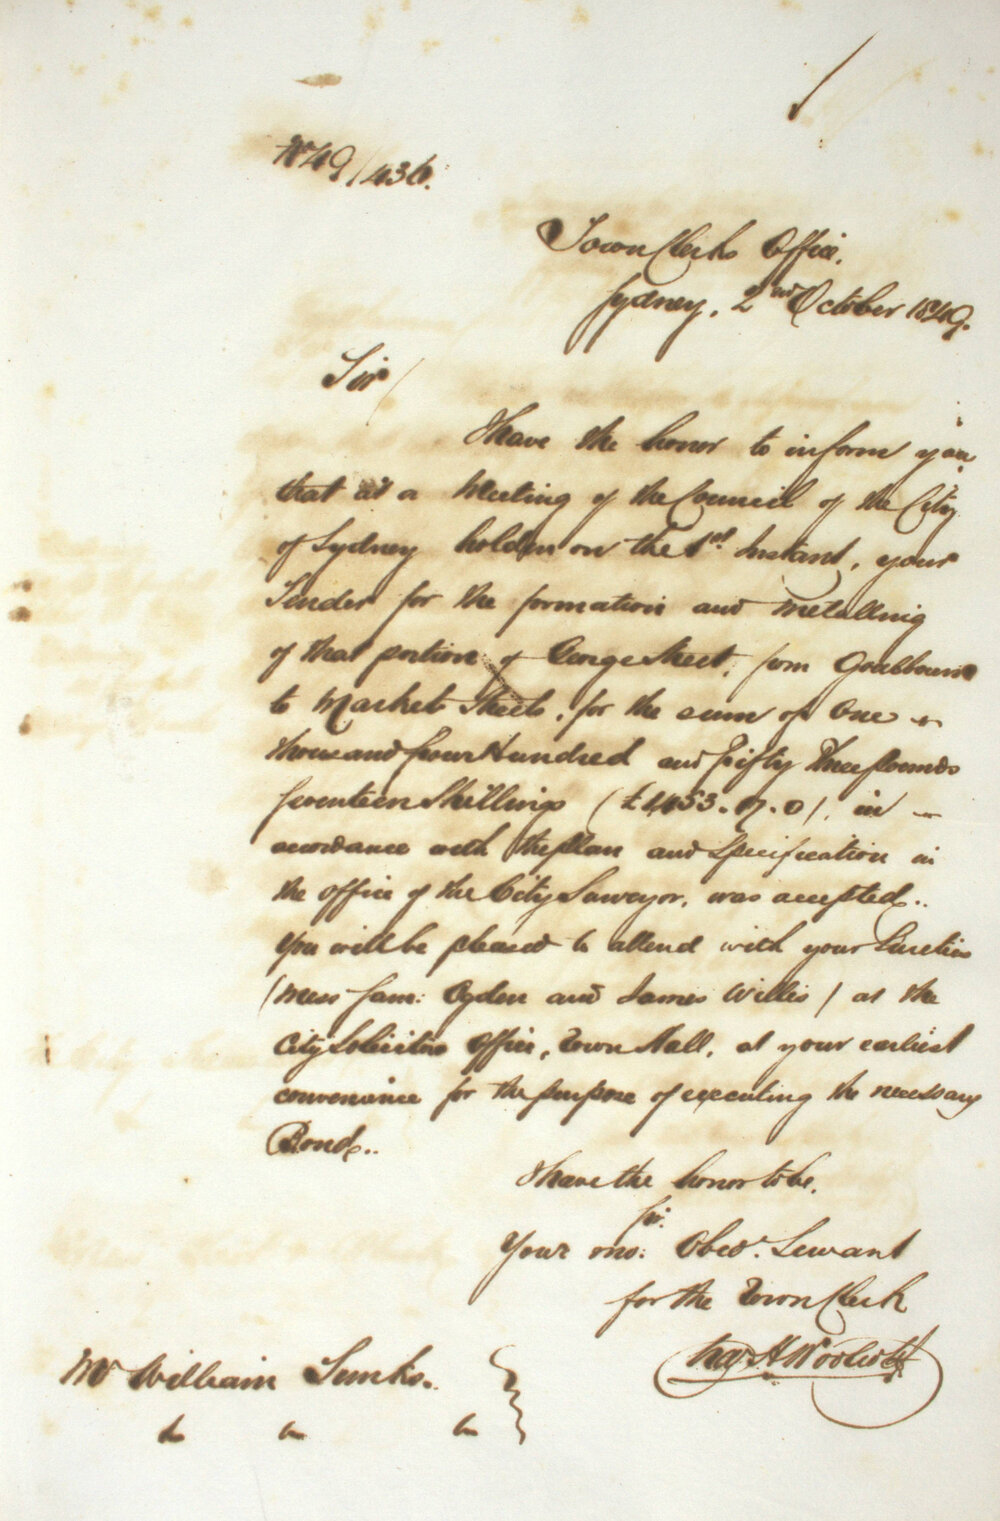 No 49/436.
Town Clerks Office.
Sydney, 2nd October 1849.
Sir
I have the honor to inform you
that at a Meeting of the Council of the City
of Sydney holden on the 1st Instant, your
Tender for the formation and Metalling
of that portion of George Street, from Goulbourn
to Market Streets, for the sum of One
thousand four Hundred and Fifty Three pounds
Seventeen Shillings (£1453.17.0), in
accordance with the plan and Specification in
the office of the City Surveyor, was accepted.
You will be pleased to attend with your Sureties
(Mess Jam: Ogden and James Willis) at the
City Solicitors Office, Town Hall, at your earliest
convenience for the purpose of executing the necessary
Bond.
I have the honor to be.
Sir.
Your mo: Obed. Servant
for the Town Clerk
Mr William